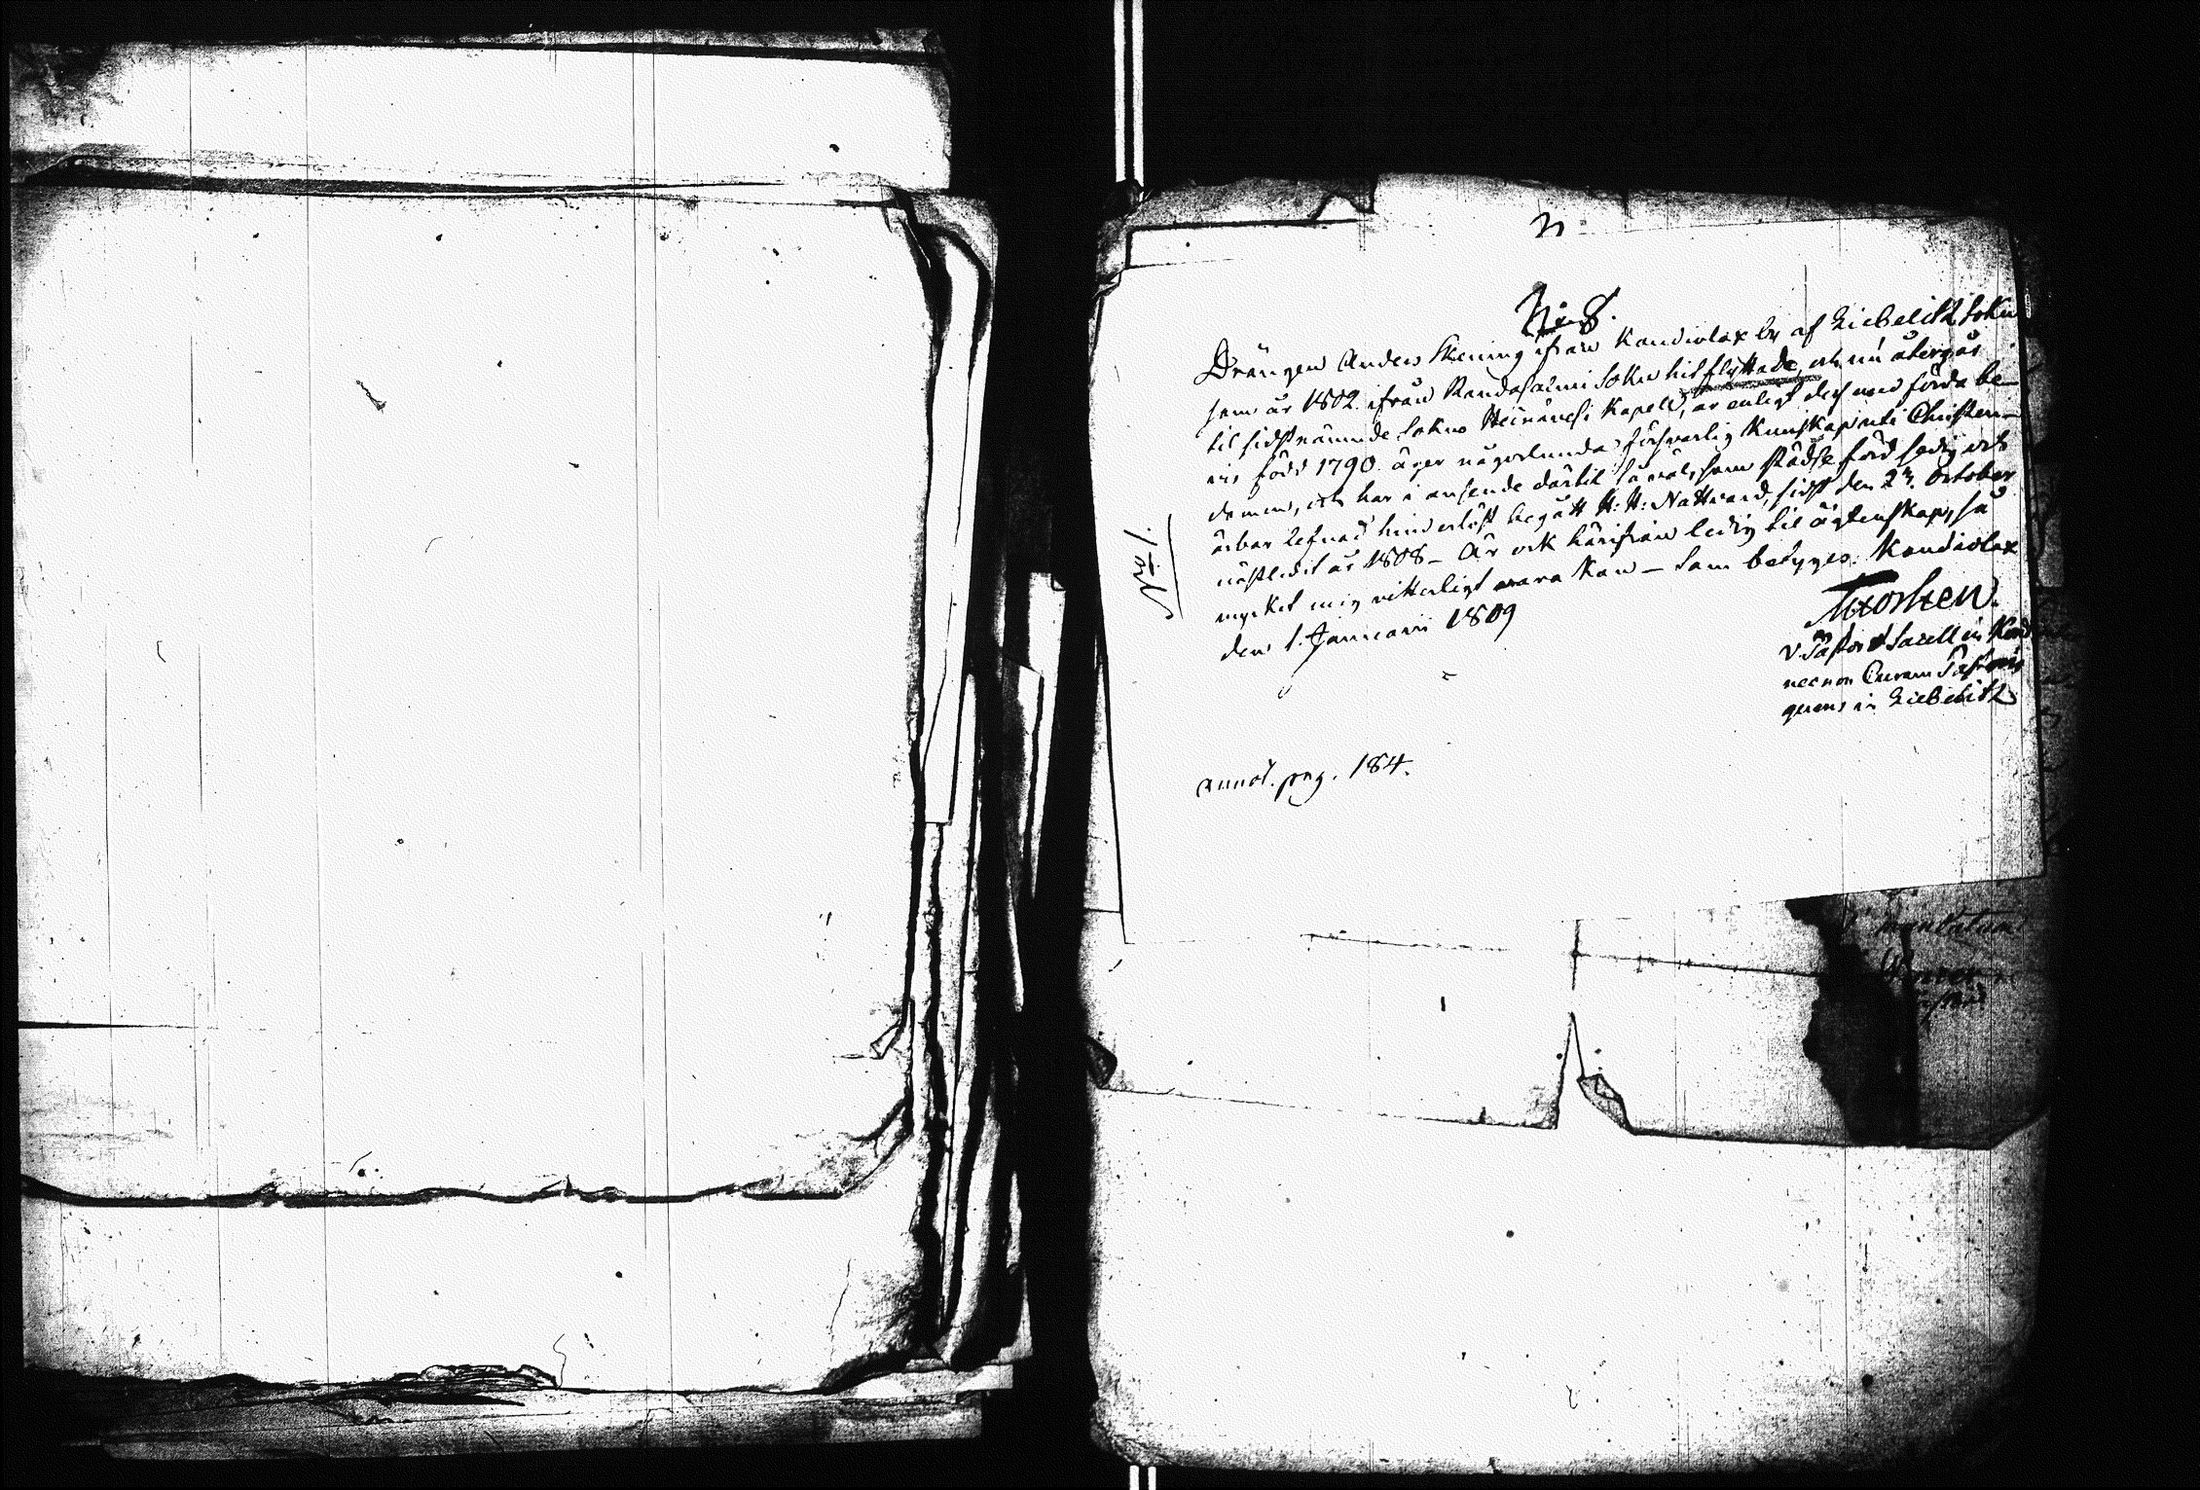 N:o 8.
Drängen Anders Skening ifrån Kondiolax by af Liebelitz Sokn
som år 1802 ifrån Randasalmi Sokn hitflyttade, och nu återgår
til sidstnämnde Sokns Heinävesi Kapell, är enligt des med förda be-
vis född 1790. äger någorlunda försvarlig kunskap uti Christen-
domen, och har i anseende därtil så väl, som städse förd sedig och
ärbar lefnad hinderlöst begått H: H: Nattvard, sidst den 23. October
nästledit år 1808 – Är ock härifrån ledig til ägtenskap, så
mycket mig vitterligt vara kan – Som betyges. Kondiolax
den 1. Januarii 1809
V. Pastor & Sacell in Kond
necnon Curam Pastoris
gerens in Liebelitz
annot. pag. 184.